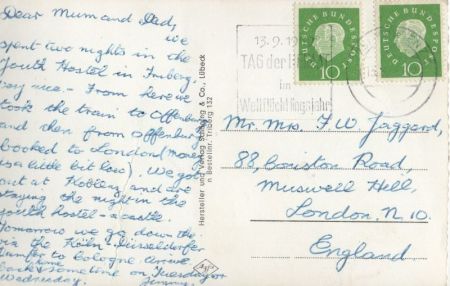 Dear Mum and Dad,
we
spent two nights in the
Youth Hostel in Triberg.
very nice - From here we
took the train to Offenburg
and then from Offenburg
booked to London (money
is a little bit low). We got
out at Koblenz and are
staying the night in the
youth hostel - a castle.
Tomorrow we go down the
via the Köln-Düsseldorfer
to Cologne. Arrive
back home sometime on Tuesday or
Wednesday. Jimmy.
Hersteller und Verlag & Co., Lübeck
Bestellnr. Triberg 132
Agfa
13.9.19
TAG der
im
Weltflüchtlingsjahr
DEUTSCHE BUNDESPOST
10
DEUTSCHE BUNDESPOST
10
Mr. Mrs. F. W. Jaggard,
88, Coniston Road,
Muswell Hill,
London, N.10.
England